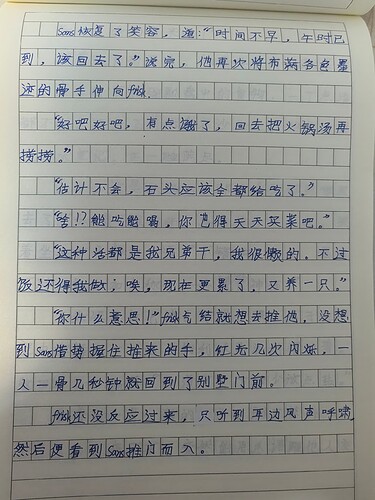 Sans恢复了笑容，道：“时间不早，午时已
到，该回去了。”说完，他再次将布满各色墨
渍的骨手伸向frisk.
“好吧好吧，有点饿了，回去把火锅汤再
捞捞。”
“估计不会，石头应该全都给吃了。”
“啥!?能吃能喝，你也得天天买菜吧。”
“这种活都是我兄弟干，我很懒的。不过
饭还得我做；唉，那在更累了，又养一只。”
“你什么意思！”frisk气结就想去推他，没想
到Sans借势握住推来的手，红光几次闪烁，一
人一骨几秒钟就回到了别墅门前。
frisk还没反应过来，只听到耳边风声呼啸，
然后便看到Sans推门而入。